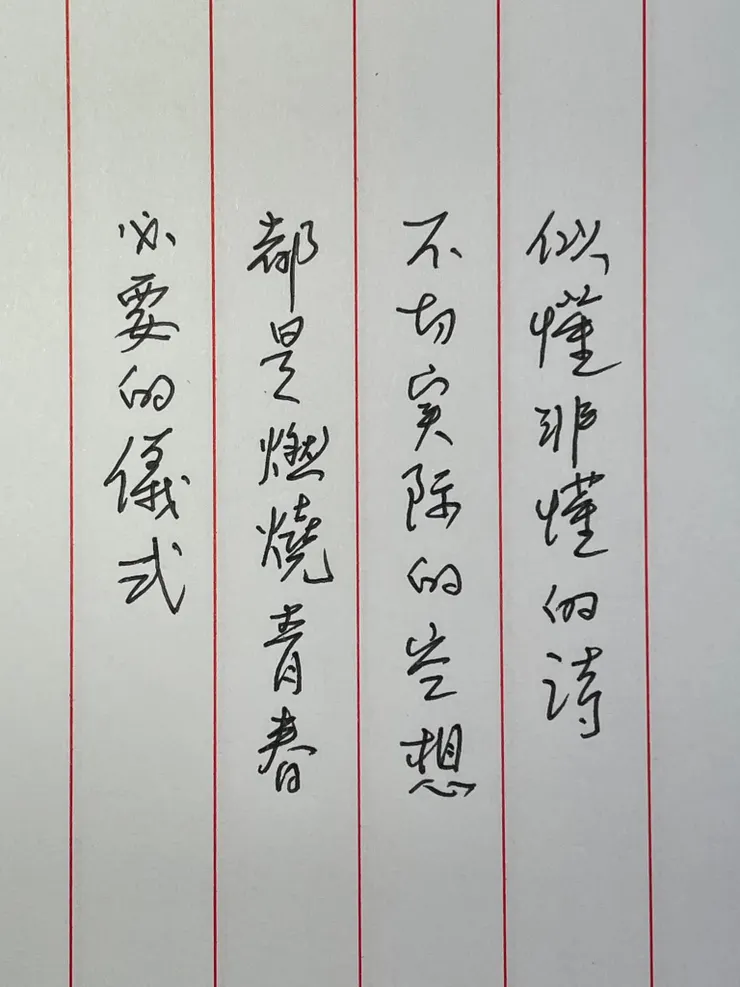 似懂非懂的诗
不切实际的空想
都是燃烧青春
必要的儀式